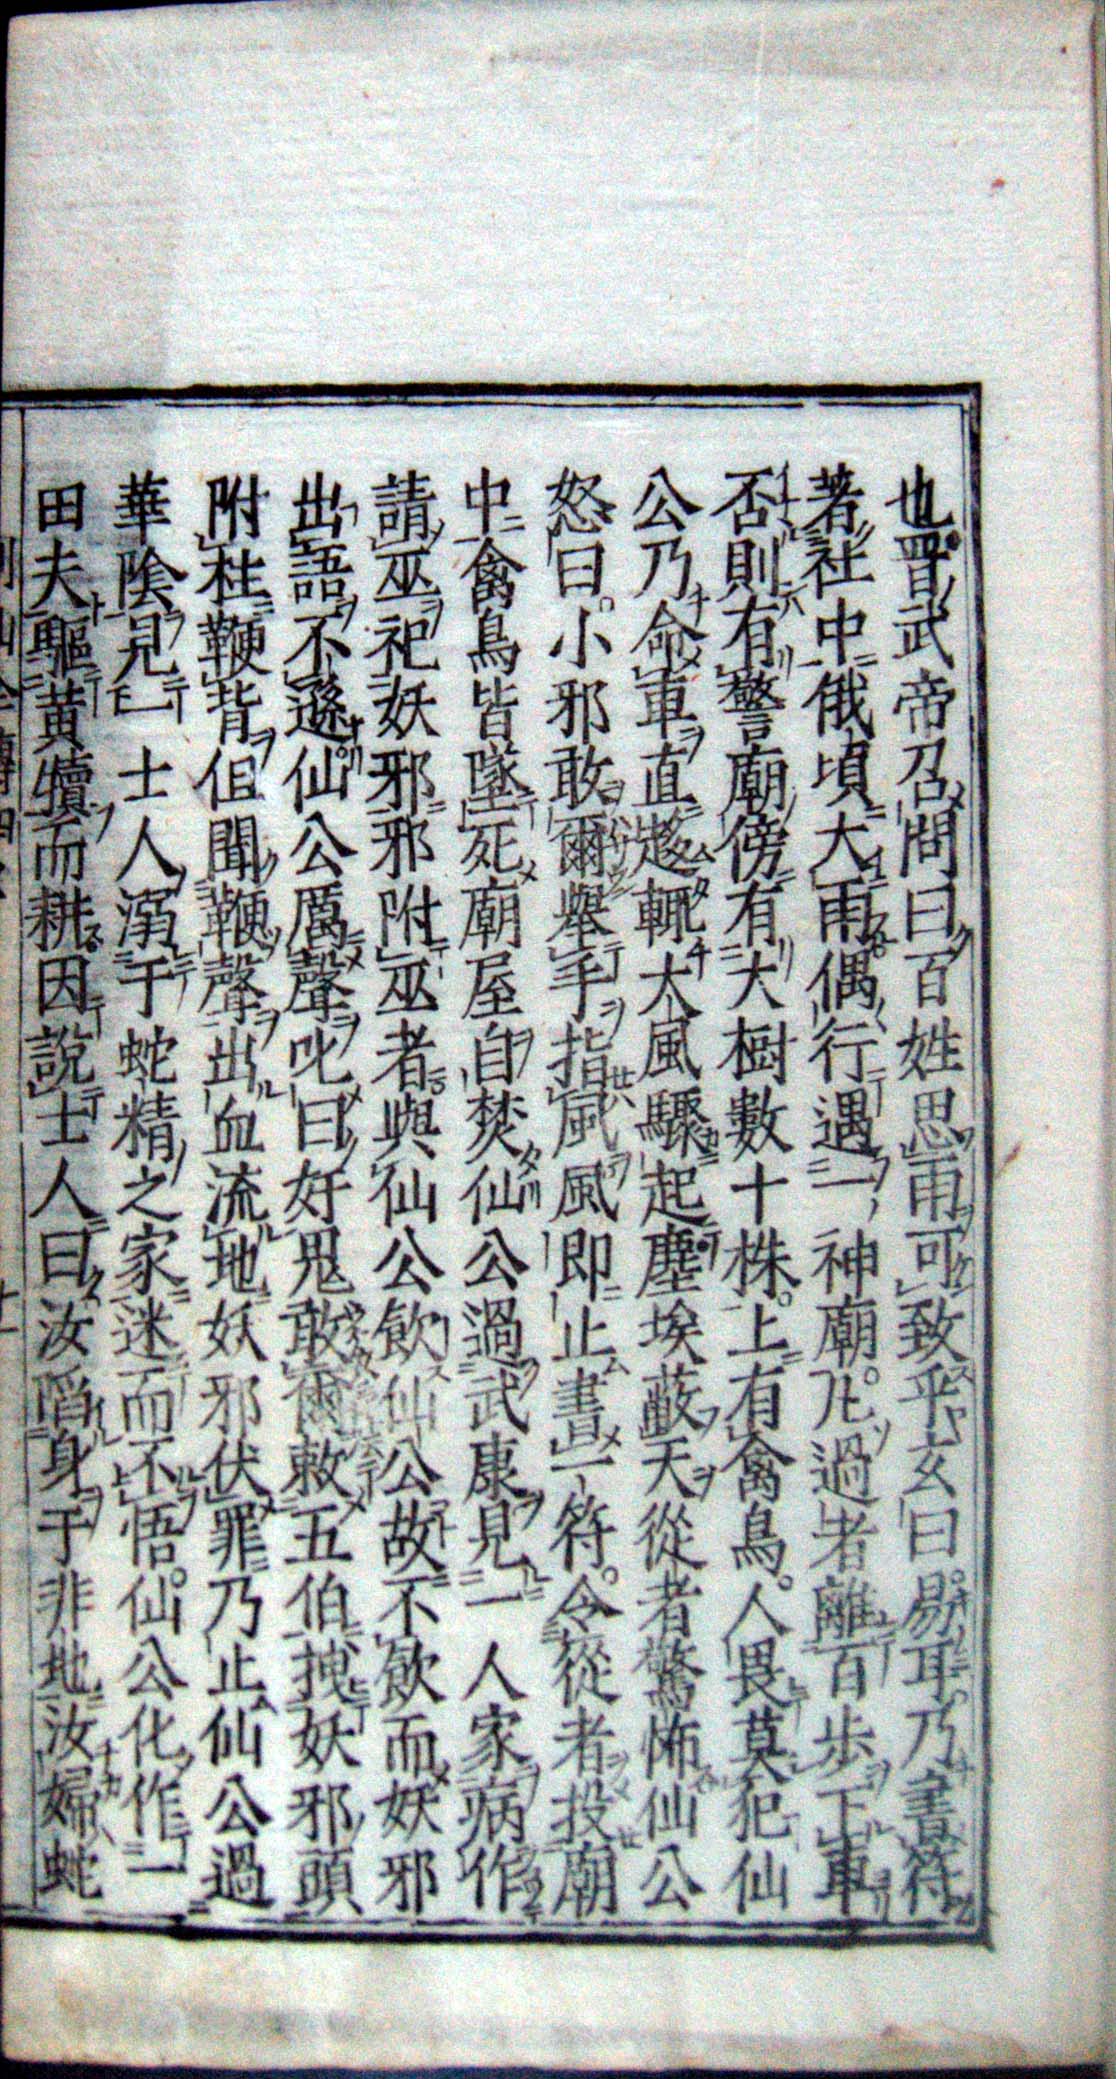 也晋武帝召問曰百姓思雨可致乎玄曰易耳乃書符
著社中俄頃大雨偶行遇一神廟凡過者離百步下車
否則有警廟傍有大樹數十株上有禽鳥人畏莫犯仙
公乃命車直趍輒大風驟起塵埃蔽天從者驚怖仙公
怒曰小邪敢爾舉手指風風即止書一符令從者投廟
中禽鳥皆墜死廟屋自焚仙公過武康見一人家病作
請巫祀妖邪邪附巫者與仙公飲仙公故不飲而妖邪
出語不遜仙公厲聲叱曰好鬼敢爾敕五伯拽妖邪頭
附柱鞭背但聞鞭聲出血流地妖邪伏罪乃止仙公過
華陰見一士人溺于蛇精之家迷而不悟仙公化作一
田夫驅黃犢而耕因說士人曰汝陷身于非地汝婦蛇